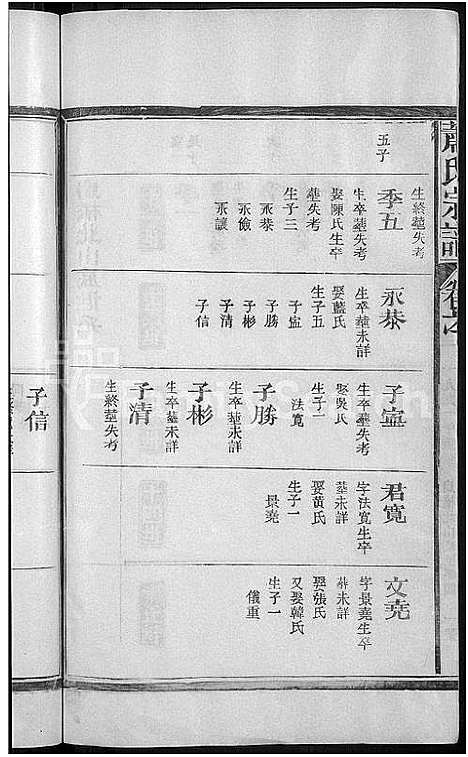 氏宗譜
生終塟失考
五子
季五
生卒塟失考
娶陳氏生卒
塟失考
生子三
永恭
永儉
永讓
永恭
生卒塟未詳
娶藍氏
生子五
子寍
子勝
子彬
子清
子信
子寍
生卒塟失考
娶吳氏
生子一
法寛
子勝
生卒塟未詳
子彬
生卒塟未詳
子清
生終塟失考
君寛
字法寛生卒
塟未詳
娶黄氏
生子一
景堯
文堯
字景堯生卒
塟未詳
娶張氏
又娶韓氏
生子一
儀重
子信